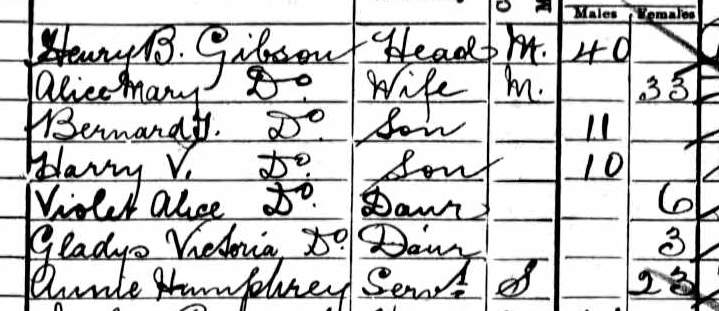 Males Females
Henry B. Gibson Head M. 40
Alice Mary Do. Wife M. 33
Bernard Do. Son 11
Harry V. Do. Son 10
Violet Alice Do. Daur 6
Gladys Victoria Do. Daur 3
Annie Humphrey Servt. S 23